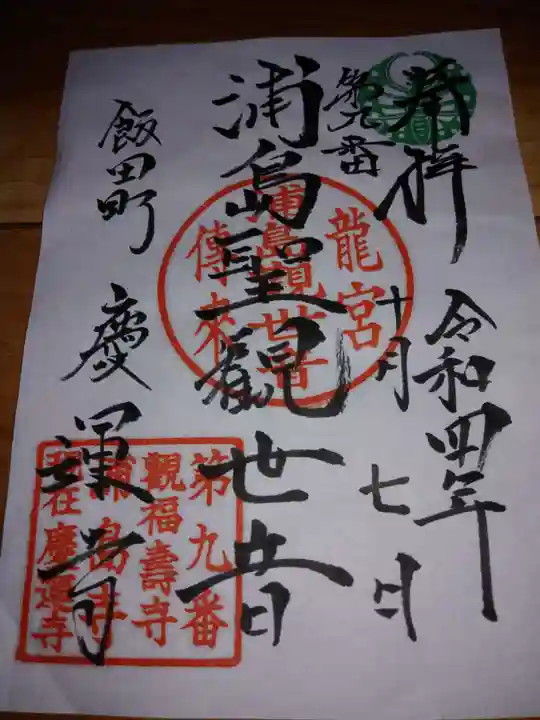 奉拝
令和四年
十月七日
第九番
浦島聖観世音
飯田町 慶運寺
龍宮
浦島観世音
傳來
第九番
觀福壽寺
浦島寺
現在慶運寺